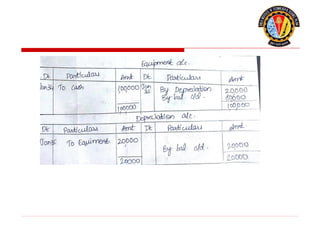 Equipment a/c.
Dt Particulars Amt Dt Particulars Amt
To Cash 100,000 Jan 31 By Depreciation 20000
By bal c/d. 100000
100000 100,000
Depreciation a/c.
Dt Particulars Amt Dt Particulars Amt
To Equiment 20000
By bal c/d. 20000
20000 20000